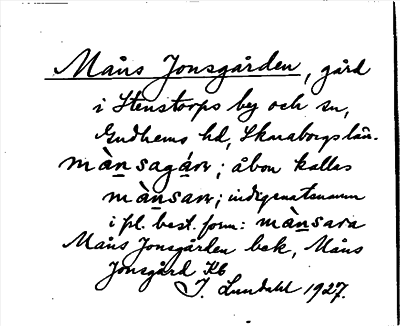 Måns Jonsgården, gård
i Stenstorps by och sn,
Gudhems hd, Skaraborgs län.
mànsagárn; åbon kalles
mànsarn; indigenatsnamn
i pl. best. form: mànsara
Måns Jonsgården bek, Måns
Jonsgård Kb
J. Lundahl 1927.